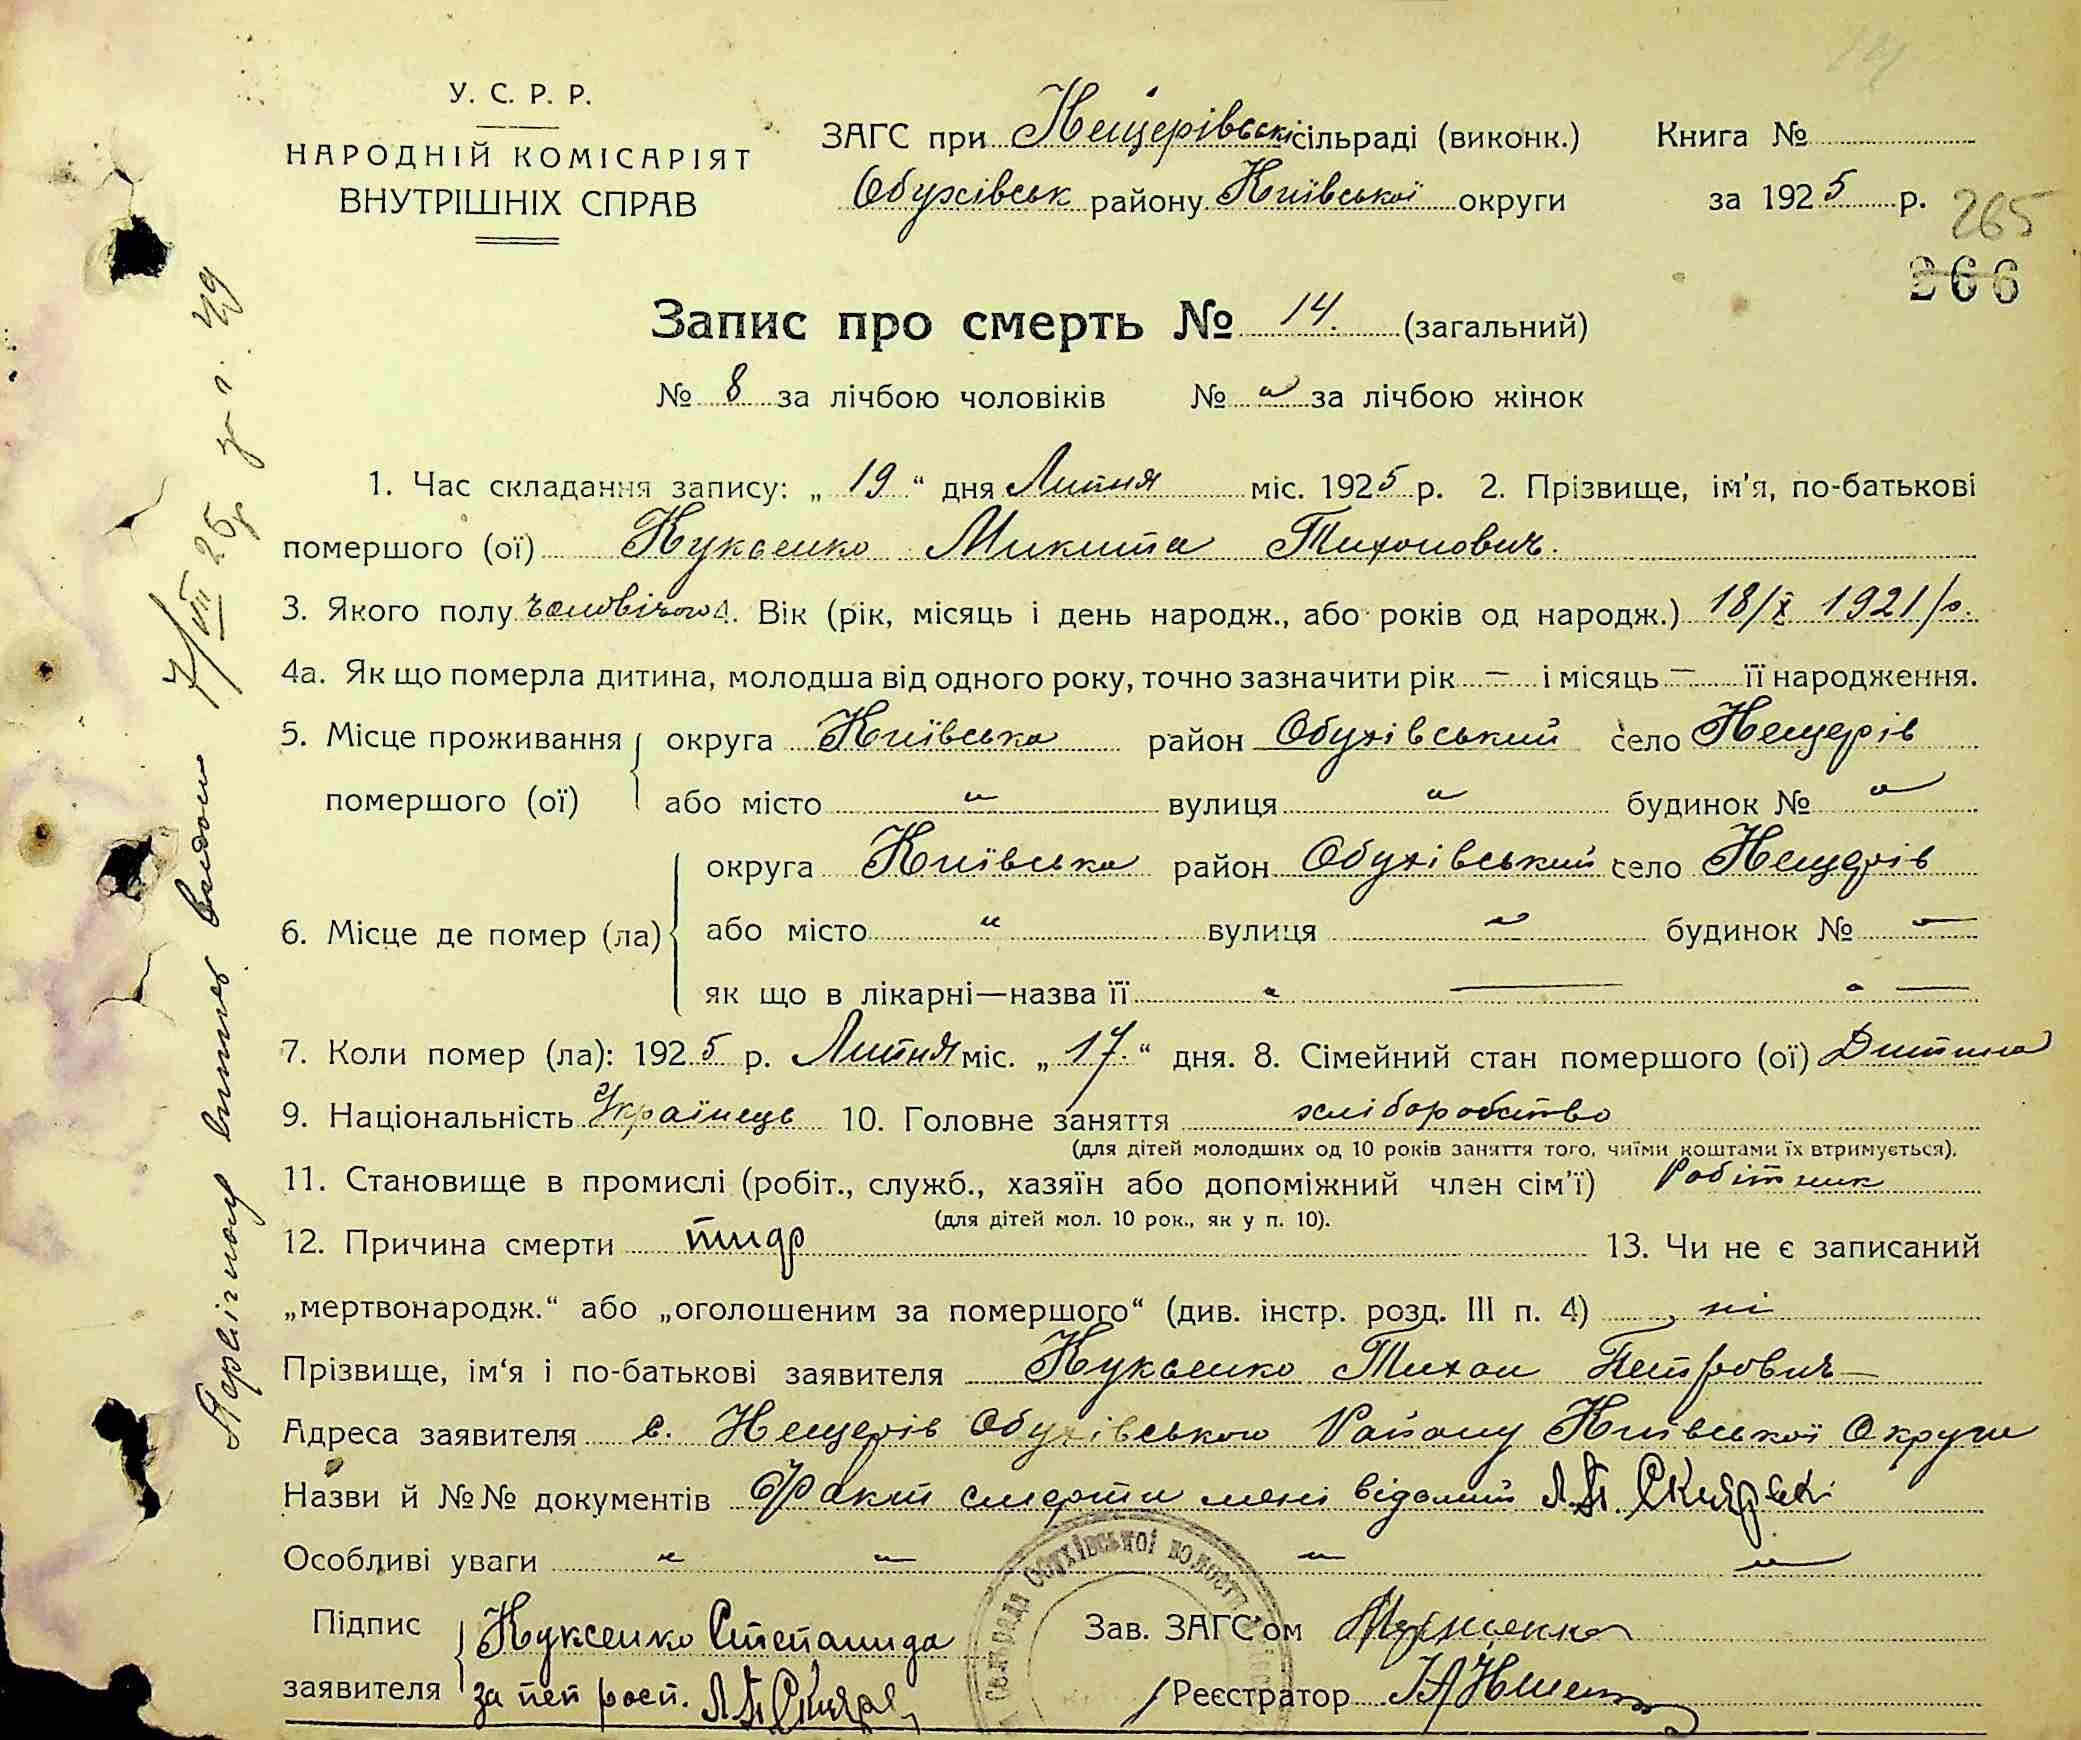 У. С. Р. Р.
НАРОДНІЙ КОМІСАРІЯТ
ВНУТРІШНІХ СПРАВ
ЗАГС при Нещерівські сільраді (виконк.) Книга №
Обухівськ району Київської округи за 1925 р.
265
266
Запис про смерть № 14. (загальний)
№ 8 за лічбою чоловіків № " за лічбою жінок
1. Час складання запису: „ 19 “ дня Липня міс. 1925 р. 2. Прізвище, ім'я, по-батькові
помершого (ої) Куксенко Микита Тихонович.
3. Якого полу чоловічого 4. Вік (рік, місяць і день народж., або років од народж.) 18/X 1921/р.
4а. Як що померла дитина, молодша від одного року, точно зазначити рік — і місяць — її народження.
5. Місце проживання помершого (ої) округа Київська район Обухівський село Нещерів
або місто " вулиця " будинок № "
6. Місце де помер (ла) округа Київська район Обухівський село Нещерів
або місто " вулиця " будинок № "
як що в лікарні—назва її " — " —
7. Коли помер (ла): 1925 р. Липня міс. „ 17. “ дня. 8. Сімейний стан помершого (ої) Дитина
9. Національність Українець 10. Головне заняття хліборобство
(для дітей молодших од 10 років заняття того, чиїми коштами їх втримується).
11. Становище в промислі (робіт., служб., хазяїн або допоміжний член сім'ї) Робітник
(для дітей мол. 10 рок., як у п. 10).
12. Причина смерти тиф 13. Чи не є записаний
„мертвонародж.“ або „оголошеним за помершого“ (див. інстр. розд. III п. 4) ні
Прізвище, ім'я і по-батькові заявителя Куксенко Тихон Петрович
Адреса заявителя с. Нещерів Обухівського Району Київської Округи
Назви й №№ документів Факт смерти мені відомий
Особливі уваги " " " "
Підпис заявителя Куксенко Степанида
за неп росп.
Зав. ЗАГС'ом
Реєстратор
Сельрада Обухівської волости
видон 7/VIII 25р